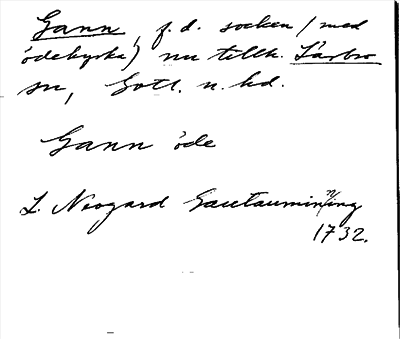 Gann, f. d. socken (med
ödekyrka) nu tillh. Lärbro
sn, Gotl. n. hd.
Gann öde
L. Neogard Gautauminning
1732.